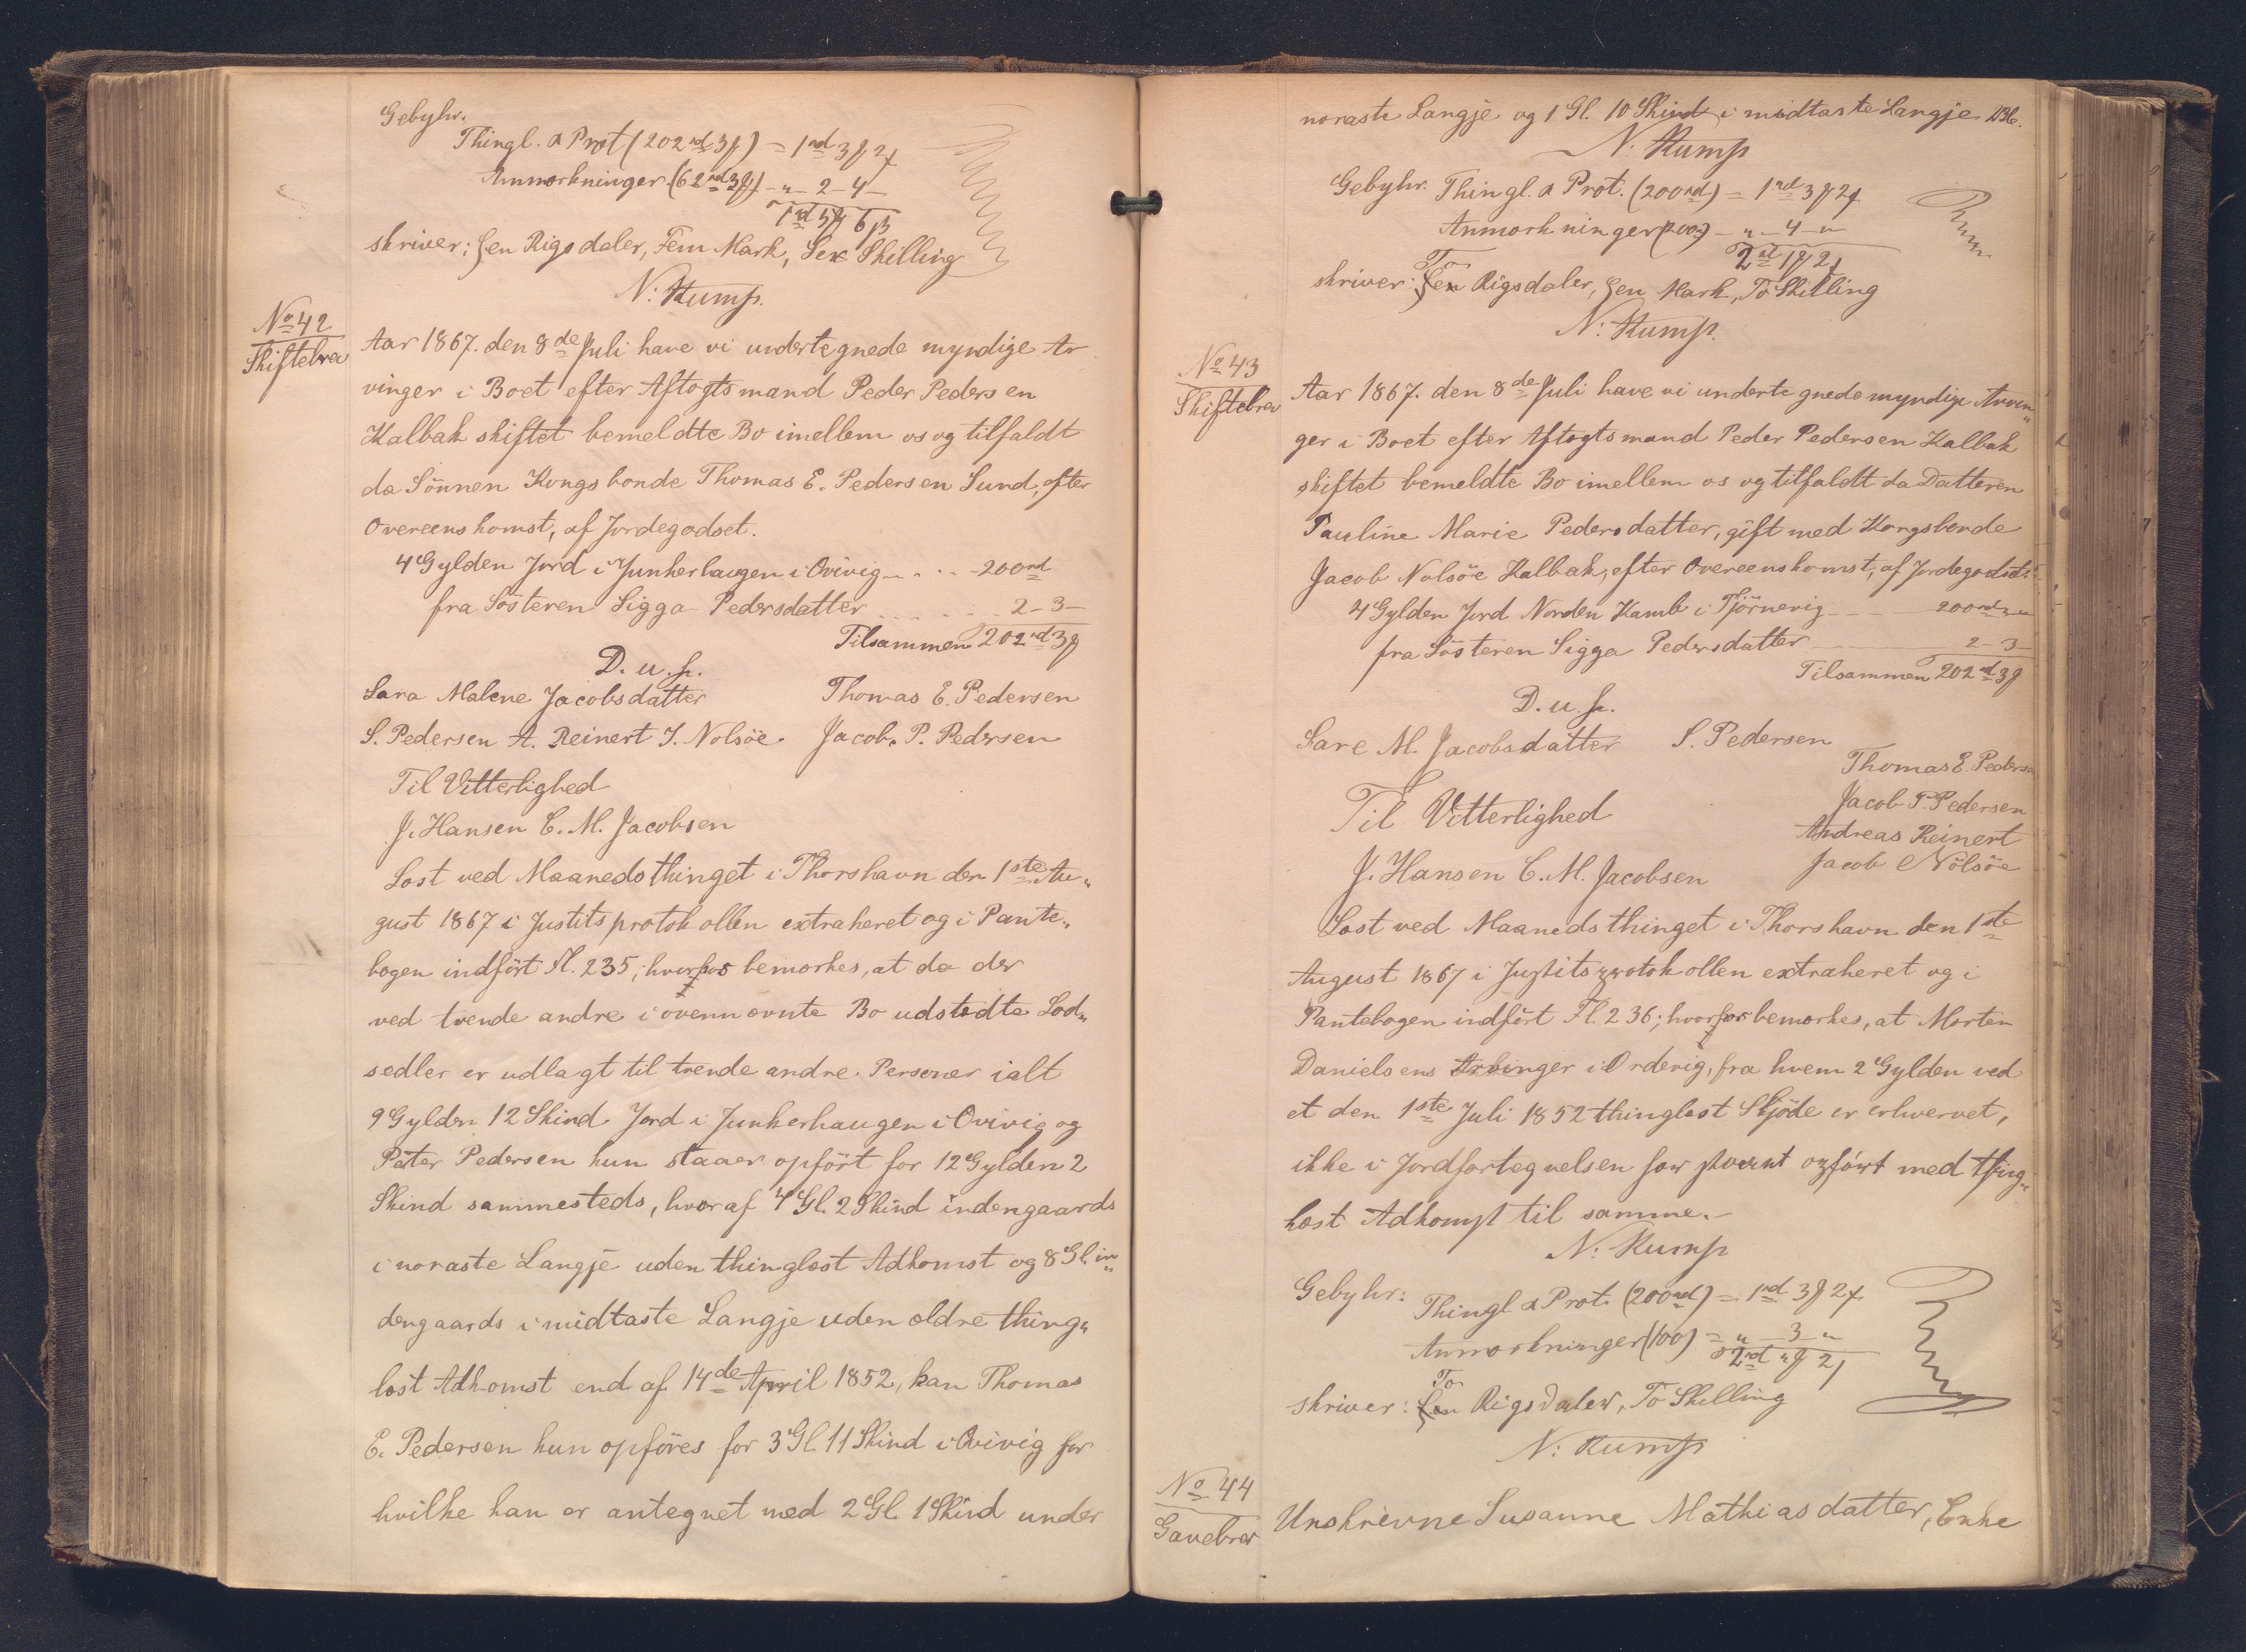 Gebyhr.
Thingl. & Prot (202 rd 3 ℔) = 1 rd 3 ℔ 2 ſ
Anmærkninger (62 rd 3 ℔) - " - 2 - 4 -
1 rd 5 ℔ 6 ß
skriver: Een Rigsdaler, Fem Mark, Sex Skilling
N: Rump.
No 42
Skiftebrev
Aar 1867. den 8de Juli have vi undertegnede myndige Ar
vinger i Boet efter Aftogtsmand Peder Pedersen
Kalbak skiftet bemeldte Bo imellem os og tilfaldt
da Sönnen Kongsbonde Thomas E. Pedersen Sund, efter
Overeenskomst, af Jordegodset.
4 Gylden Jord i Junkerhaugen i Oivivig - . . . - 200 rd
fra Sösteren Sigga Pedersdatter . . . . - 2 - 3 -
Tilsammen 202 rd 3 ℔
D. u. s.
Sara Malene Jacobsdatter Thomas E. Pedersen
S. Pedersen A. Reinert J. Nolsöe. Jacob. P. Pedersen
Til Vitterlighed
J. Hansen C. M. Jacobsen
Læst ved Maanedsthinget i Thorshavn den 1ste Au„
gust 1867 i Justitsprotokollen extraheret og i Pante„
bogen indfört Fl. 235; hvorhos bemærkes, at da der
ved tvende andre i ovennævnte Bo udstedte Lod„
sedler er udlagt til trende andre Personer ialt
9 Gylden 12 Skind Jord i Junkerhaugen i Oivivig og
Peter Pedersen kun staaer opfört for 12 Gylden 2
Skind sammesteds, hvoraf 4 Gl. 2 Skind indengaards
i noraste Langje uden thinglæst Adkomst og 8 Gl. in„
dengaards i midtaste Langje uden ældre thing„
læst Adkomst end af 14de April 1852, kan Thomas
E. Pedersen kun opföres for 3 Gl. 11 Skind i Oivivig for
hvilke han er antegnet med 2 Gl. 1 Skind under
noraste Langje og 1 Gl. 10 Skind i midtaste Langje 236.
N: Rump
Gebyhr. Thingl. & Prot. (200 rd) = 1 rd 3 ℔ 2 ſ
Anmærkninger (200) - " - 4 - "
2 rd 1 ℔ 2 ſ
To
skriver: Een Rigsdaler, Een Mark, To Skilling
N: Rump.
No 43
Skiftebrev
Aar 1867. den 8de Juli have vi undertegnede myndige Arvin„
ger i Boet efter Aftogtsmand Peder Pedersen Kalbak
skiftet bemeldte Bo imellem os og tilfaldt da Datteren
Pauline Marie Pedersdatter, gift med Kongsbonde
Jacob Nolsöe Kalbak, efter Overeenskomst, af Jordegodset:
4 Gylden Jord Norden Kamb i Tjörnevig - - 200 rd " "
fra Sösteren Sigga Pedersdatter - 2 - 3 -
Tilsammen 202 rd 3 ℔
D. u. s.
Sare M. Jacobsdatter S. Pedersen
Thomas E. Pedersen
Til Vitterlighed Jacob P. Pedersen
Andreas Reinert
J. Hansen C. M. Jacobsen Jacob Nölsöe
Læst ved Maanedsthinget i Thorshavn den 1ste
August 1867 i Justitsprotokollen extraheret og i
Pantebogen indfört Fl. 236; hvorhos bemærkes, at Morten
Danielsens Arvinger i Ordevig, fra hvem 2 Gylden ved
et den 1ste Juli 1852 thinglæst Skjöde er erhvervet,
ikke i Jordfortegnelsen som saadant opfört med thing„
læst Adkomst til samme.-
N: Rump
Gebyhr: Thingl & Prot. (200 rd) = 1 rd 3 ℔ 2 ſ
Anmærkninger (100) = " - 3 - "
2 rd " ℔ 2 ſ
To
skriver: Een Rigsdaler, To Skilling
N: Rump
No 44
Gavebrev
Unskrevne Susanne Mathiasdatter, Enke